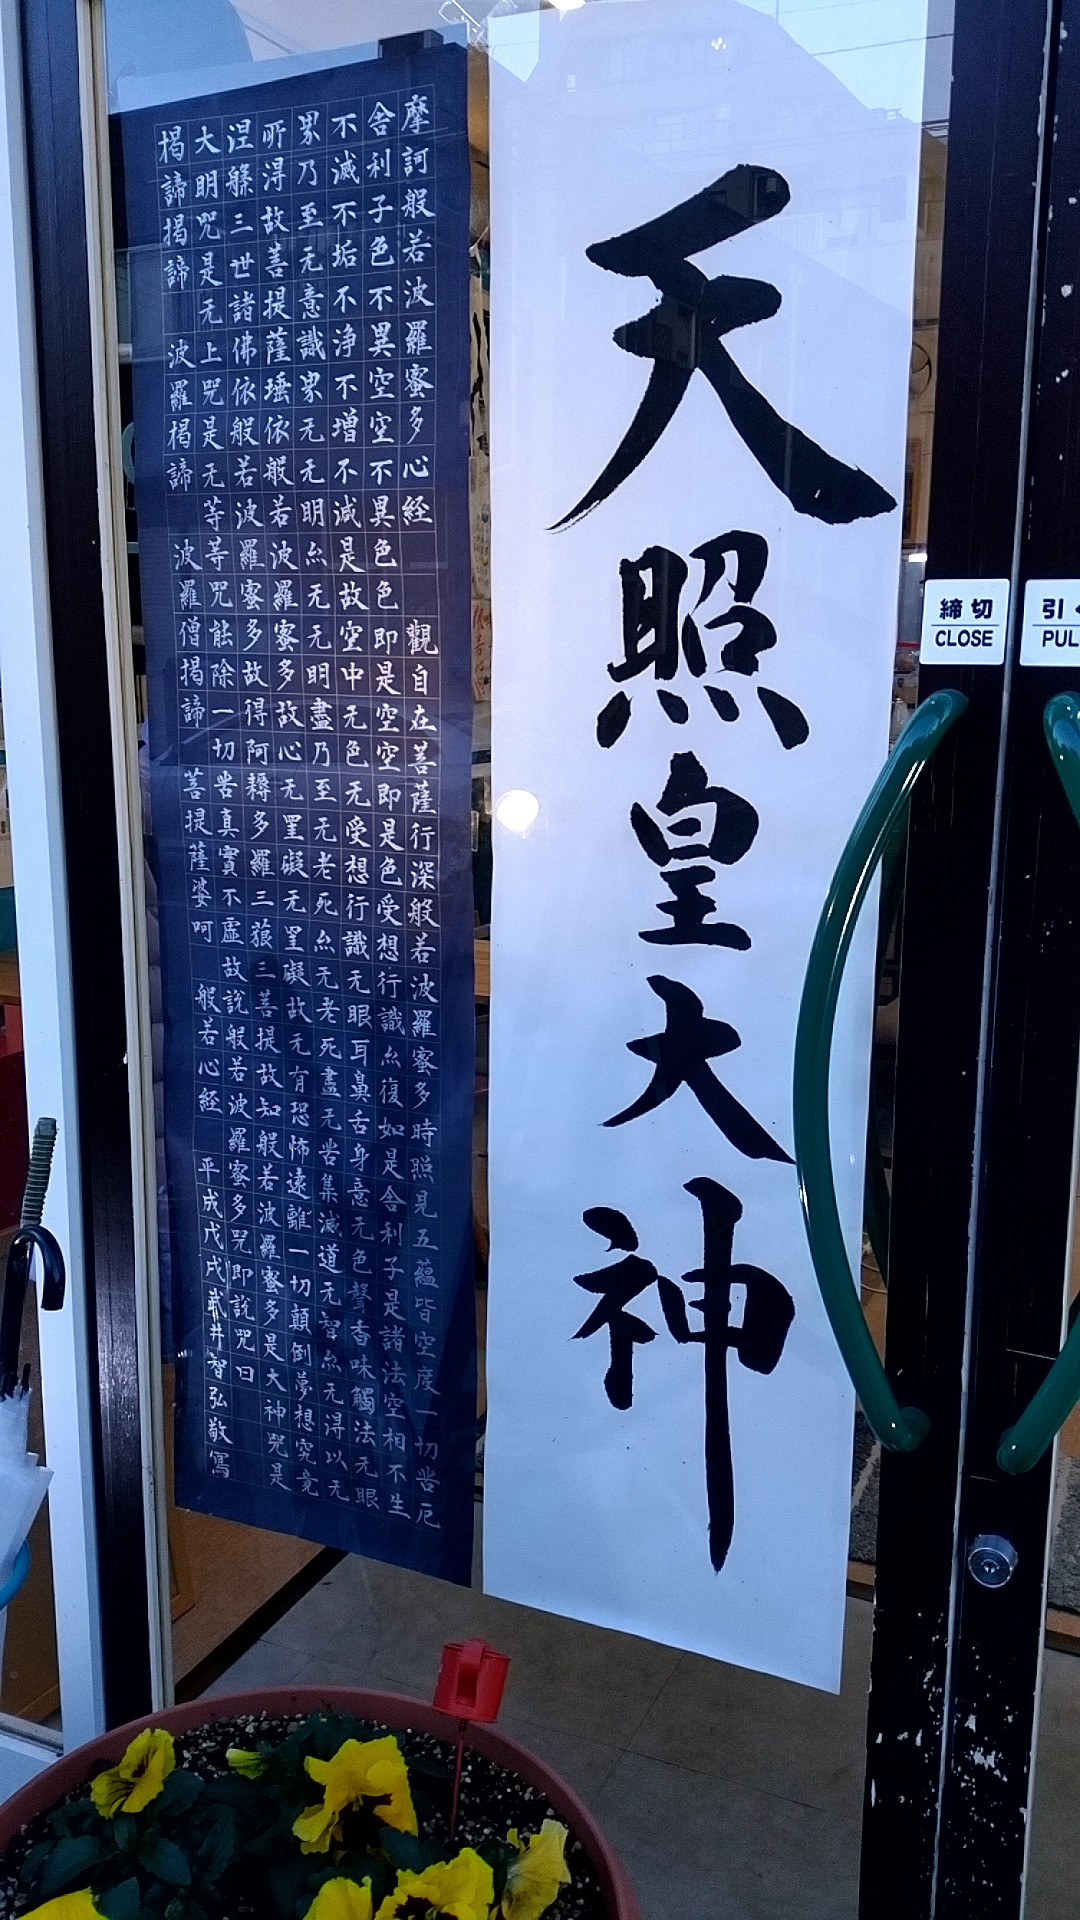 天照皇大神
摩訶般若波羅蜜多心経 觀自在菩薩行深般若波羅蜜多時照見五蘊皆空度一切苦厄
舎利子色不異空空不異色色即是空空即是色受想行識亦復如是舎利子是諸法空相不生
不滅不垢不浄不増不減是故空中无色无受想行識无眼耳鼻舌身意无色聲香味觸法无眼
界乃至无意識界无无明亦无无明盡乃至无老死亦无老死盡无苦集滅道无智亦无得以无
所得故菩提薩埵依般若波羅蜜多故心无罣礙无罣礙故无有恐怖遠離一切顛倒夢想究竟
涅槃三世諸佛依般若波羅蜜多故得阿耨多羅三藐三菩提故知般若波羅蜜多是大神咒是
大明咒是无上咒是无等等咒能除一切苦真實不虚故説般若波羅蜜多咒即説咒曰
揭諦揭諦 波羅揭諦 波羅僧揭諦 菩提薩婆呵 般若心経 平成戊戌武井智弘敬寫
締切
CLOSE
引
PUL